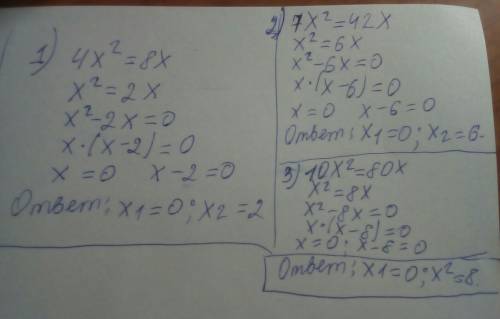 1) 4x² = 8x
x² = 2x
x² - 2x = 0
x · (x - 2) = 0
x = 0 x - 2 = 0
Ответ: x1 = 0; x2 = 2
2) 7x² = 42x
x² = 6x
x² - 6x = 0
x · (x - 6) = 0
x = 0 x - 6 = 0
Ответ: x1 = 0; x2 = 6.
3) 10x² = 80x
x² = 8x
x² - 8x = 0
x · (x - 8) = 0
x = 0; x - 8 = 0
Ответ: x1 = 0; x² = 8.